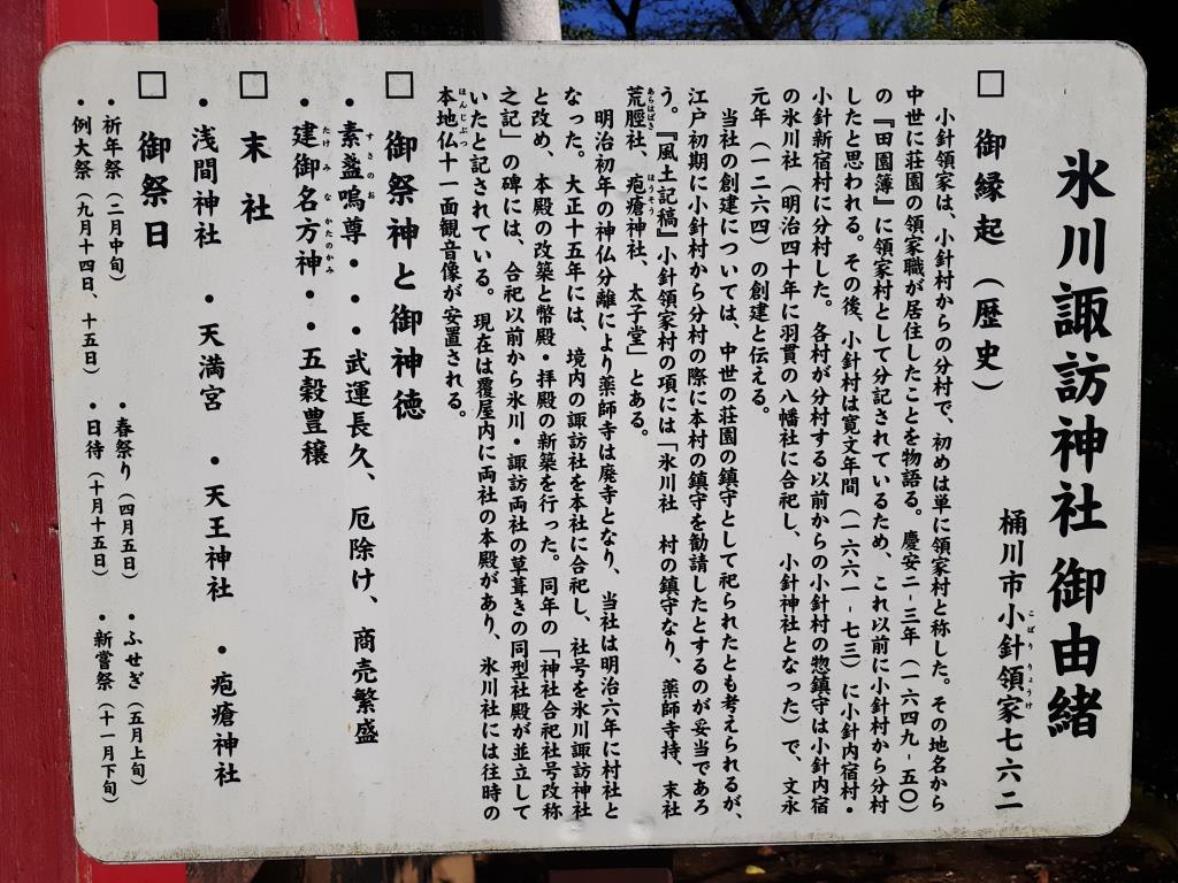 氷川諏訪神社 御由緒
桶川市小針領家七六二
こばり りょうけ
□ 御縁起（歴史）
小針領家は、小針村からの分村で、初めは単に領家村と称した。その地名から
中世に荘園の領家職が居住したことを物語る。慶安二-三年（一六四九-五〇）
の『田園簿』に領家村として分記されているため、これ以前に小針村から分村
したと思われる。その後、小針村は寛文年間（一六六一-七三）に小針内宿村・
小針新宿村に分村した。各村が分村する以前からの小針村の惣鎮守は小針内宿
の氷川社（明治四十年に羽貫の八幡社に合祀し、小針神社となった）で、文永
元年（一二六四）の創建と伝える。
当社の創建については、中世の荘園の鎮守として祀られたとも考えられるが、
江戸初期に小針村から分村の際に本村の鎮守を勧請したとするのが妥当であろ
う。『風土記稿』小針領家村の項には「氷川社 村の鎮守なり、薬師寺持、末社
荒脛社、疱瘡神社、太子堂」とある。
あらはばき ほうそう
明治初年の神仏分離により薬師寺は廃寺となり、当社は明治六年に村社と
なった。大正十五年には、境内の諏訪社を本社に合祀し、社号を氷川諏訪神社
と改め、本殿の改築と幣殿・拝殿の新築を行った。同年の「神社合祀社号改称
之記」の碑には、合祀以前から氷川・諏訪両社の草葺きの同型社殿が並立して
いたと記されている。現在は覆屋内に両社の本殿があり、氷川社には往時の
本地仏十一面観音像が安置される。
ほんじぶつ
□ 御祭神と御神徳
・素盞嗚尊・・・武運長久、厄除け、商売繁盛
すさのお
・建御名方神・・五穀豊穣
たけみなかたのかみ
□ 末社
・浅間神社 ・天満宮 ・天王神社 ・疱瘡神社
□ 御祭日
・祈年祭（二月中旬） ・春祭り（四月五日） ・ふせぎ（五月上旬）
・例大祭（九月十四日、十五日） ・日待（十月十五日） ・新嘗祭（十一月下旬）